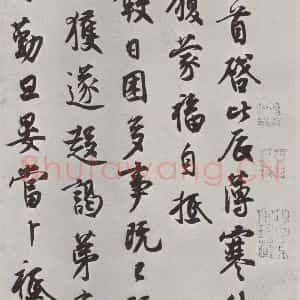 首啓比辰薄寒
履蒙福自抵
日困多事既
獲遂趍謁第
勤旦晏當卜
Shufawang.CN